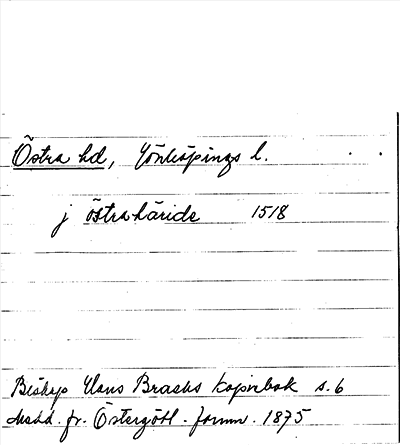 Östra hd, Jönköpings l.
j östrahäride 1518
Biskop Hans Brasks kopiebok s. 6
Medd. fr. Östergötl. fornm. 1875